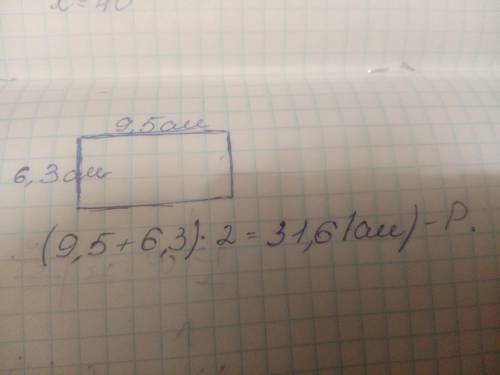 x = 40
9,5 см
6,3 см
(9,5+6,3)·2 = 31,6 (см) - P.